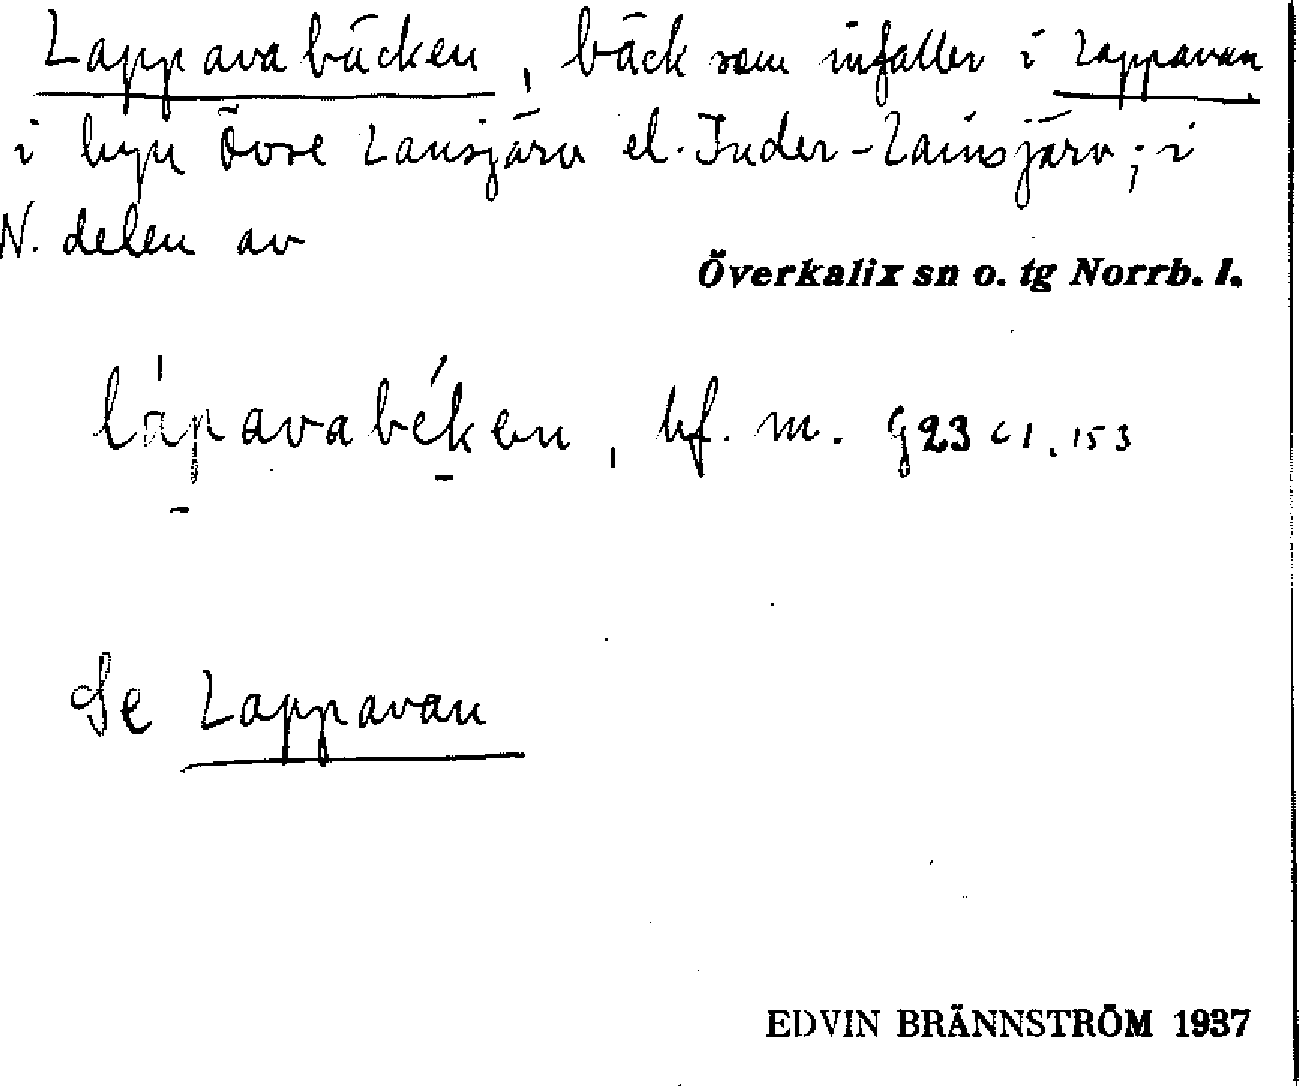 Lappavabäcken, bäck som infaller i Lappavan
i byn Övre Lansjärv el. Inder-Lainsjärv; i
N. delen av
Överkalix sn o. tg Norrb. l.
lápavabéken, bf. m. g23 c1. 153
Se Lappavan
EDVIN BRÄNNSTRÖM 1937